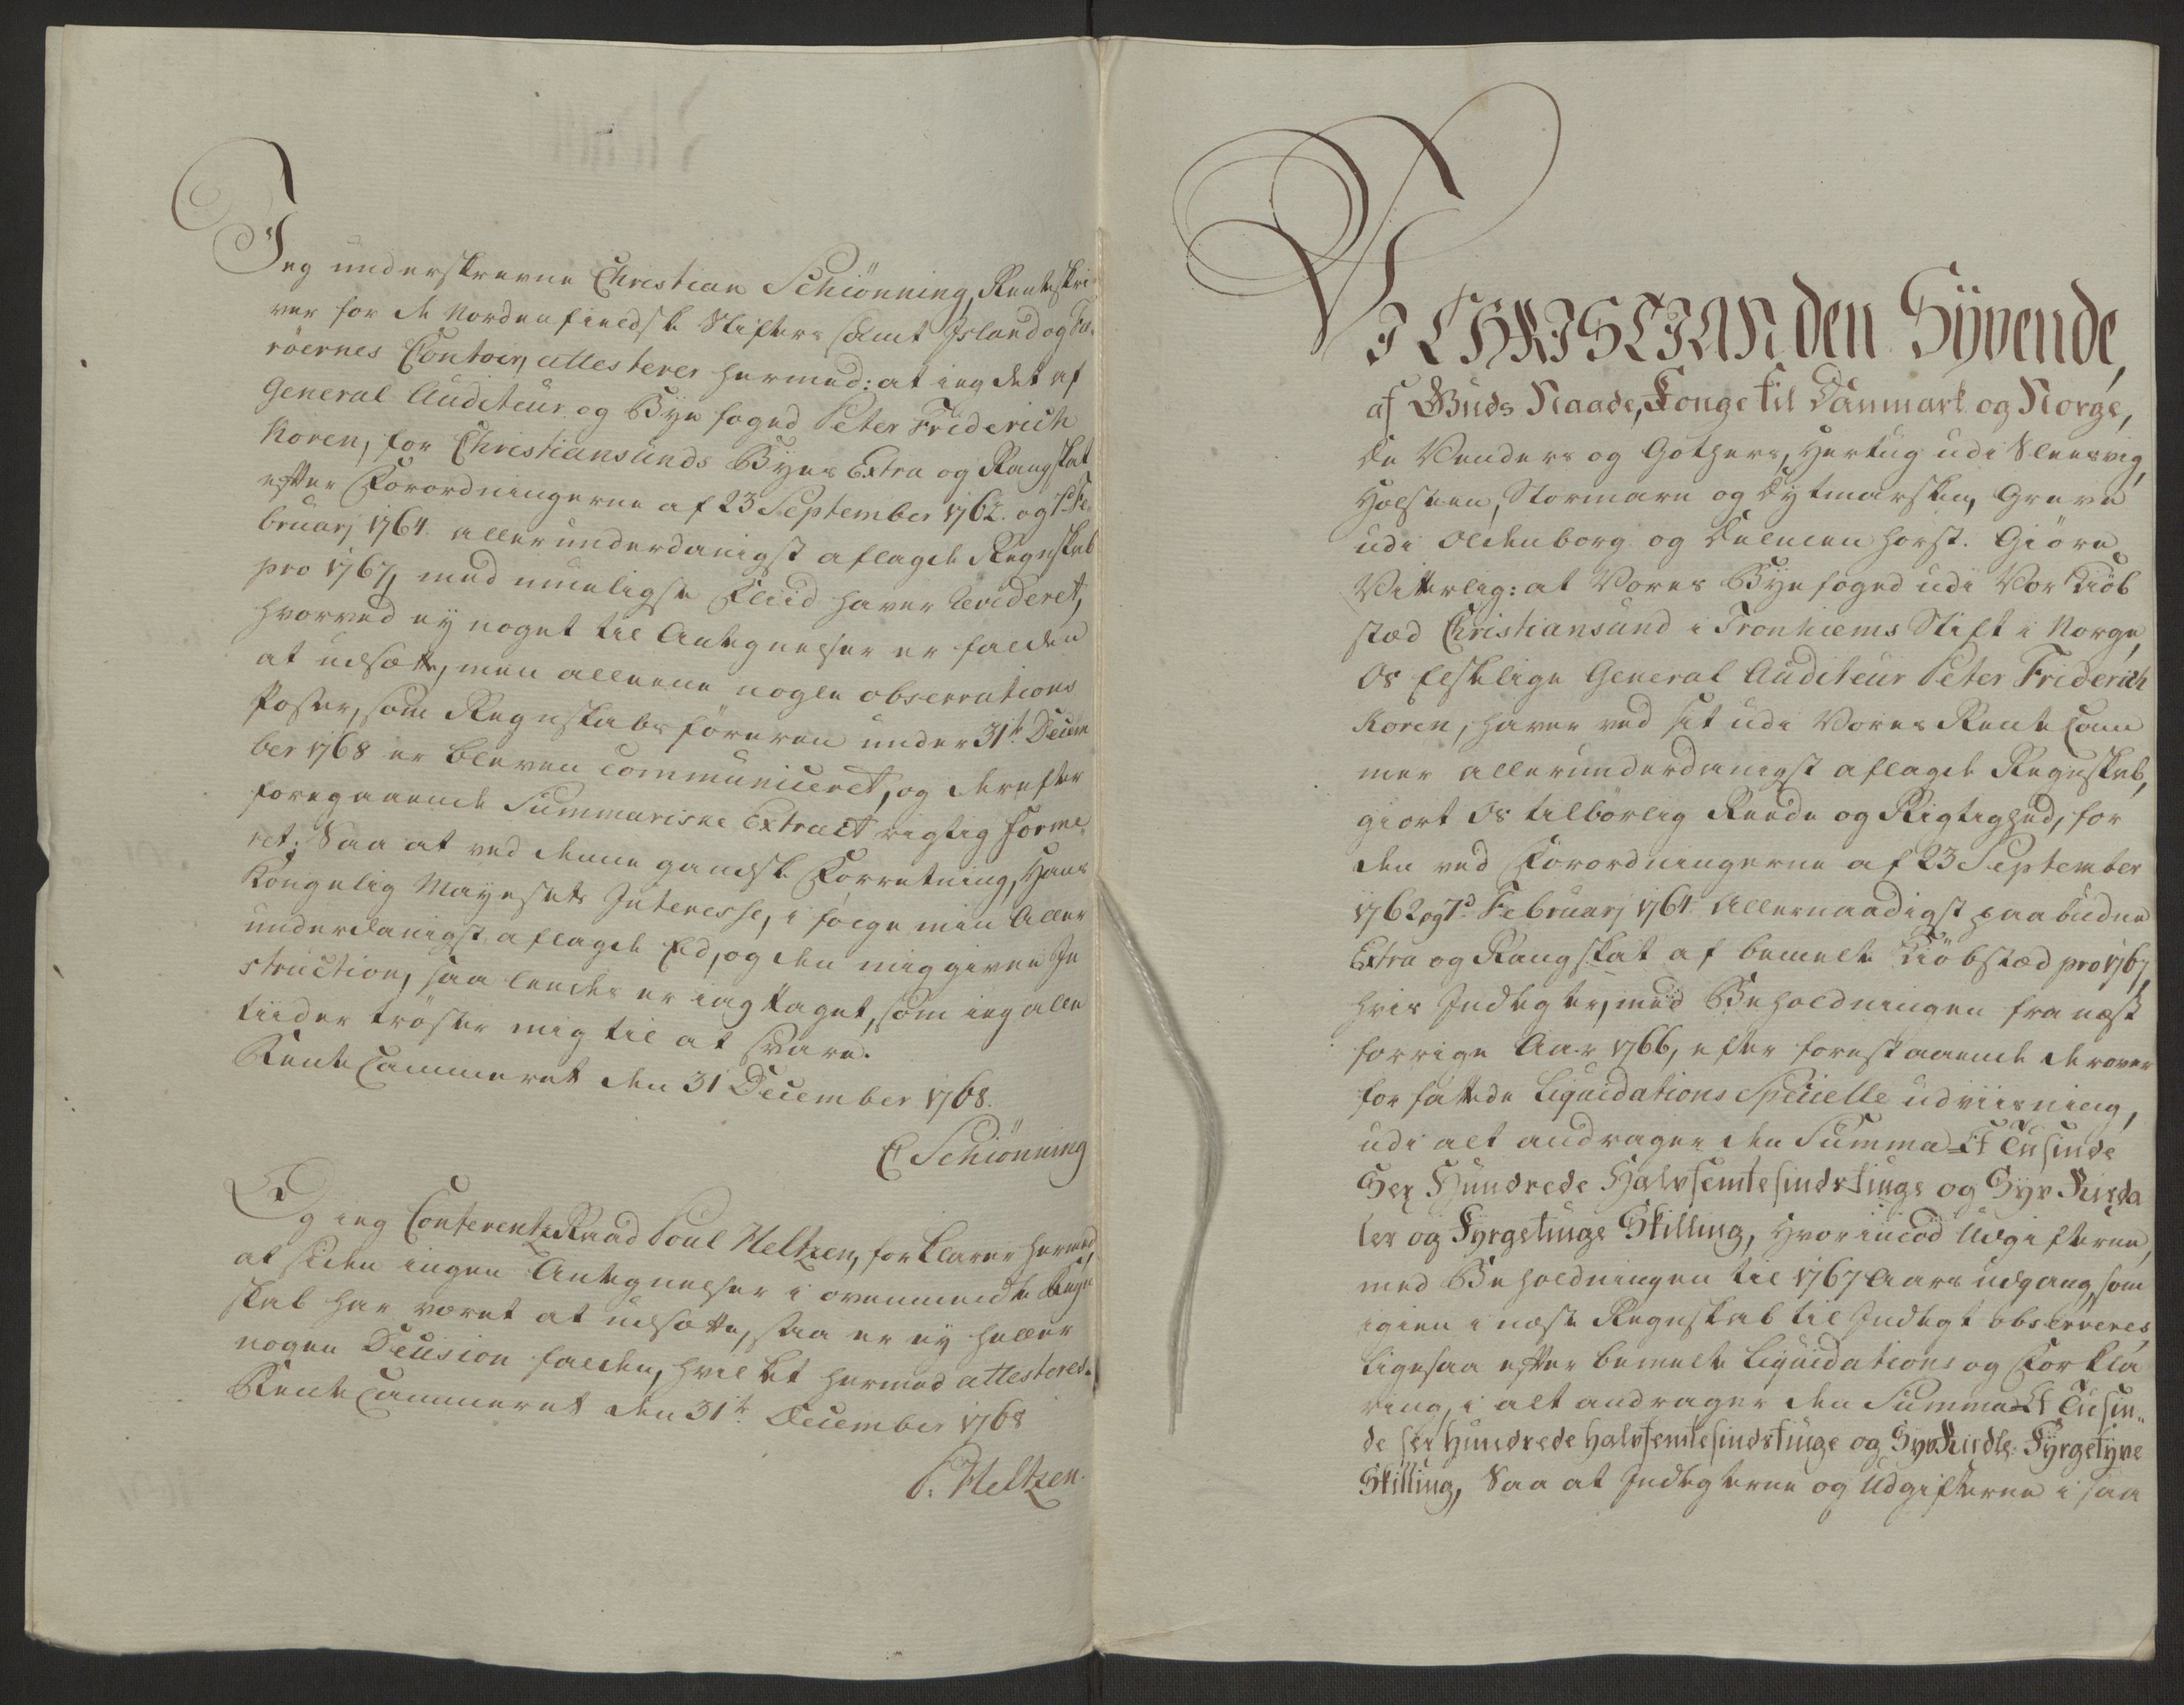 Jeg underskrevne Christian Schiönning, Renteskri-
ver for de Nordenfieldske Stifters samt Island og Fæ-
röernes Contoir, attesterer hermed: at ieg det af
General Auditeur og Bye foged Peter Friderich
Koren, for Christiansunds Byes Extra og Rangskat
efter Forordningerne af 23 September 1762. og 7de Fe-
bruarj 1764. allerunderdanigst aflagde Regnskab
pro 1767, med mueligste Fliid haver Revideret,
hvorved ey noget til Antegnelser er falden
at udsætte, men alleene nogle observations
Poster, som Regnskabsföreren under 31te Decem
ber 1768 er bleven communiceret, og derefter
foregaaende Summariske Extract rigtig forme-
ret; Saa at ved denne gandske Forretning, Hans
Kongelig Mayestets Interesse, i fölge min Aller
underdanigst aflagde Eed, og den mig givne In
struction, saaledes er iagttaget, som ieg alle
tiider tröster mig til at svare.
RenteCammeret den 31 December 1768.
C Schiönning
Og ieg Conferentz Raad Poul Heltzen, forklarer hermed,
at siden ingen Antegnelser i ovenmeldte Regn
skab har været at udsætte, saa er ey heller
nogen Decision falden, hvilket hermed attesteres.
RenteCammeret den 31te December 1768
P. Heltzen.
VI CHRISTIAN den Syvende,
af Guds Naade, Konge til Danmark og Norge,
de Venders og Gothers, Hertug udi Slesvig,
Holsteen, Stormarn og Dytmarsken, Greve
udi Oldenborg og Delmenhorst. Giöre
Vitterlig: at Vores Byefoged udi Vor Kiöb
stæd Christiansund i Tronhiems Stift i Norge,
Os Elskelige General Auditeur Peter Friderich
Koren, haver ved sit udi Vores Rente Cam
mer allerunderdanigst aflagde Regnskab,
giort Os tilbörlig Reede og Rigtighed, for
den ved Forordningerne af 23 September
1762 og 7de Februarj 1764 Allernaadigst paabudne
Extra og Rangskat af bemelte Kiöbstæd pro 1767,
hvis Indtegter, med Beholdningen fra næst
forrige Aar 1766, efter forestaaende derover
forfattede Liquidations Specielle udviisning,
udi alt andrager den Summa Et Tusinde
Sex Hundrede Halvfemtesindstiuge og Syv Rixda
ler og Fyrgetiuge Skilling, Hvorimod Udgifterne,
med Beholdningen til 1767 Aars udgang, som
igien i næste Regnskab til Indtegt observeres,
ligesaa efter bemelte Liquidations og Forkla
ring, i alt andrager den Summa Et Tusin-
de sex Hundrede halvfemtesindstiuge og Syv Rixdlr. Fyrgetyve
Skilling, Saa at Indtegterne og Udgifterne i saa